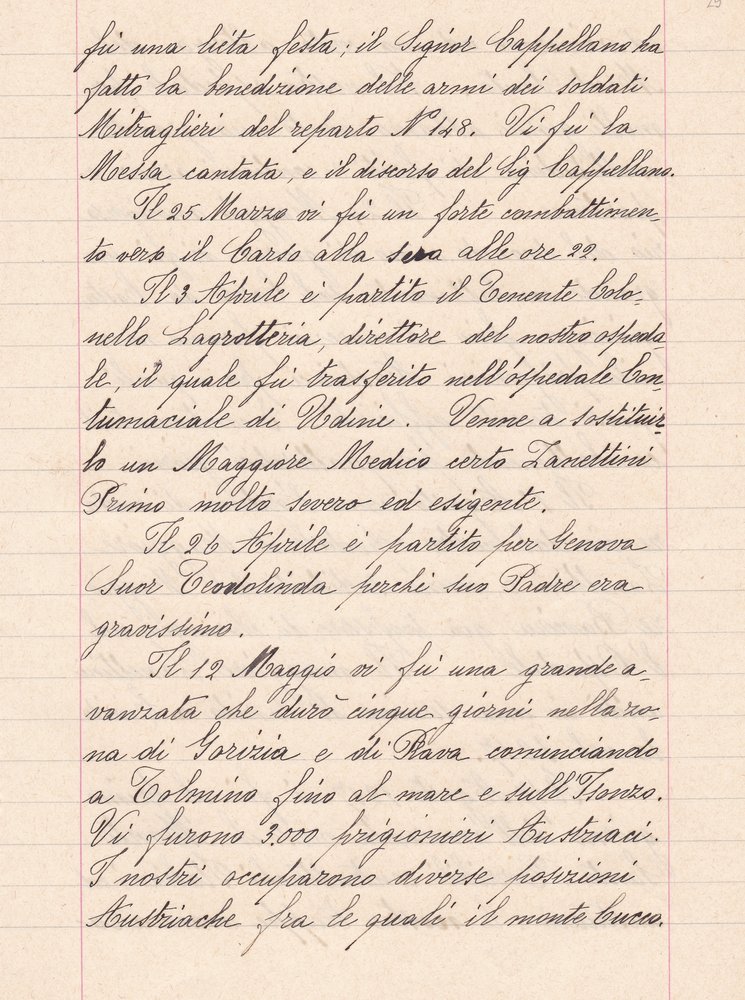 29
fù una lieta festa; il Signor Cappellano ha
fatto la benedizione delle armi dei soldati
Mitraglieri del reparto Nº 148. Vi fù la
Messa cantata, e il discorso del Sig Cappellano.
Il 25 Marzo vi fù un forte combattimen-
to verso il Carso alla sera alle ore 22.
Il 3 Aprile è partito il Tenente Colo-
nello Lagrotteria, direttore del nostro ospeda-
le, il quale fù trasferito nell'ospedale Con-
tumaciale di Udine. Venne a sostituir-
lo un Maggiore Medico certo Zanettini
Primo molto severo ed esigente.
Il 26 Aprile è partito per Genova
Suor Teodolinda perchè suo Padre era
gravissimo.
Il 12 Maggio vi fù una grande a-
vanzata che durò cinque giorni nella zo-
na di Gorizia e di Plava cominciando
a Tolmino fino al mare e sull'Isonzo.
Vi furono 3.000 prigionieri Austriaci.
I nostri occuparono diverse posizioni
Austriache fra le quali il monte Cucco.